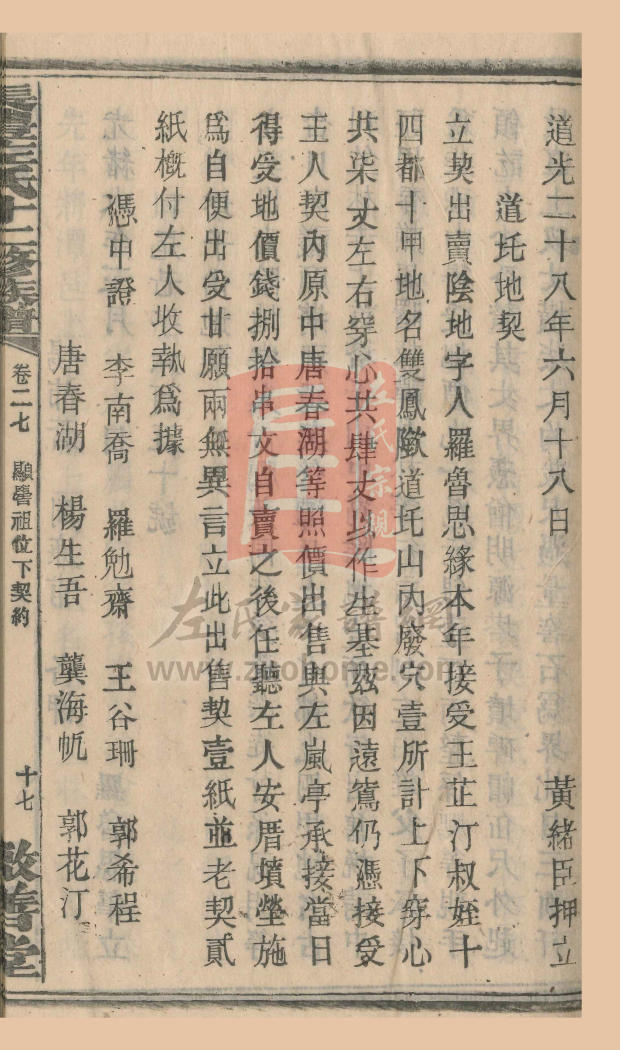 道光二十八年六月十八日　黃緒臣押立
道圫地契
立契出賣陰地字人羅魯思緣本年接受王芷汀叔姪十
四都十甲地名雙鳳墩道圫山內廢穴壹所計上下穿心
共柒丈左右穿心共肆丈以作生基茲因遠窵仍憑接受
王人契內原中唐春湖等照價出售與左嵐亭承接當日
得受地價錢捌拾串文自賣之後任聽左人安厝墳塋施
爲自便出受甘願兩無異言立此出售契壹紙並老契貳
紙槪付左人收執爲據
憑中證　李南喬　羅勉齋　王谷珊　郭希程
唐春湖　楊生吾　龔海帆　郭花汀
左氏十二修族譜　卷二七　顯譽祖位下契約　十七　敦善堂
左氏家譜網
www.zuohome.com